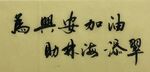 為興安加油
助林海添翠